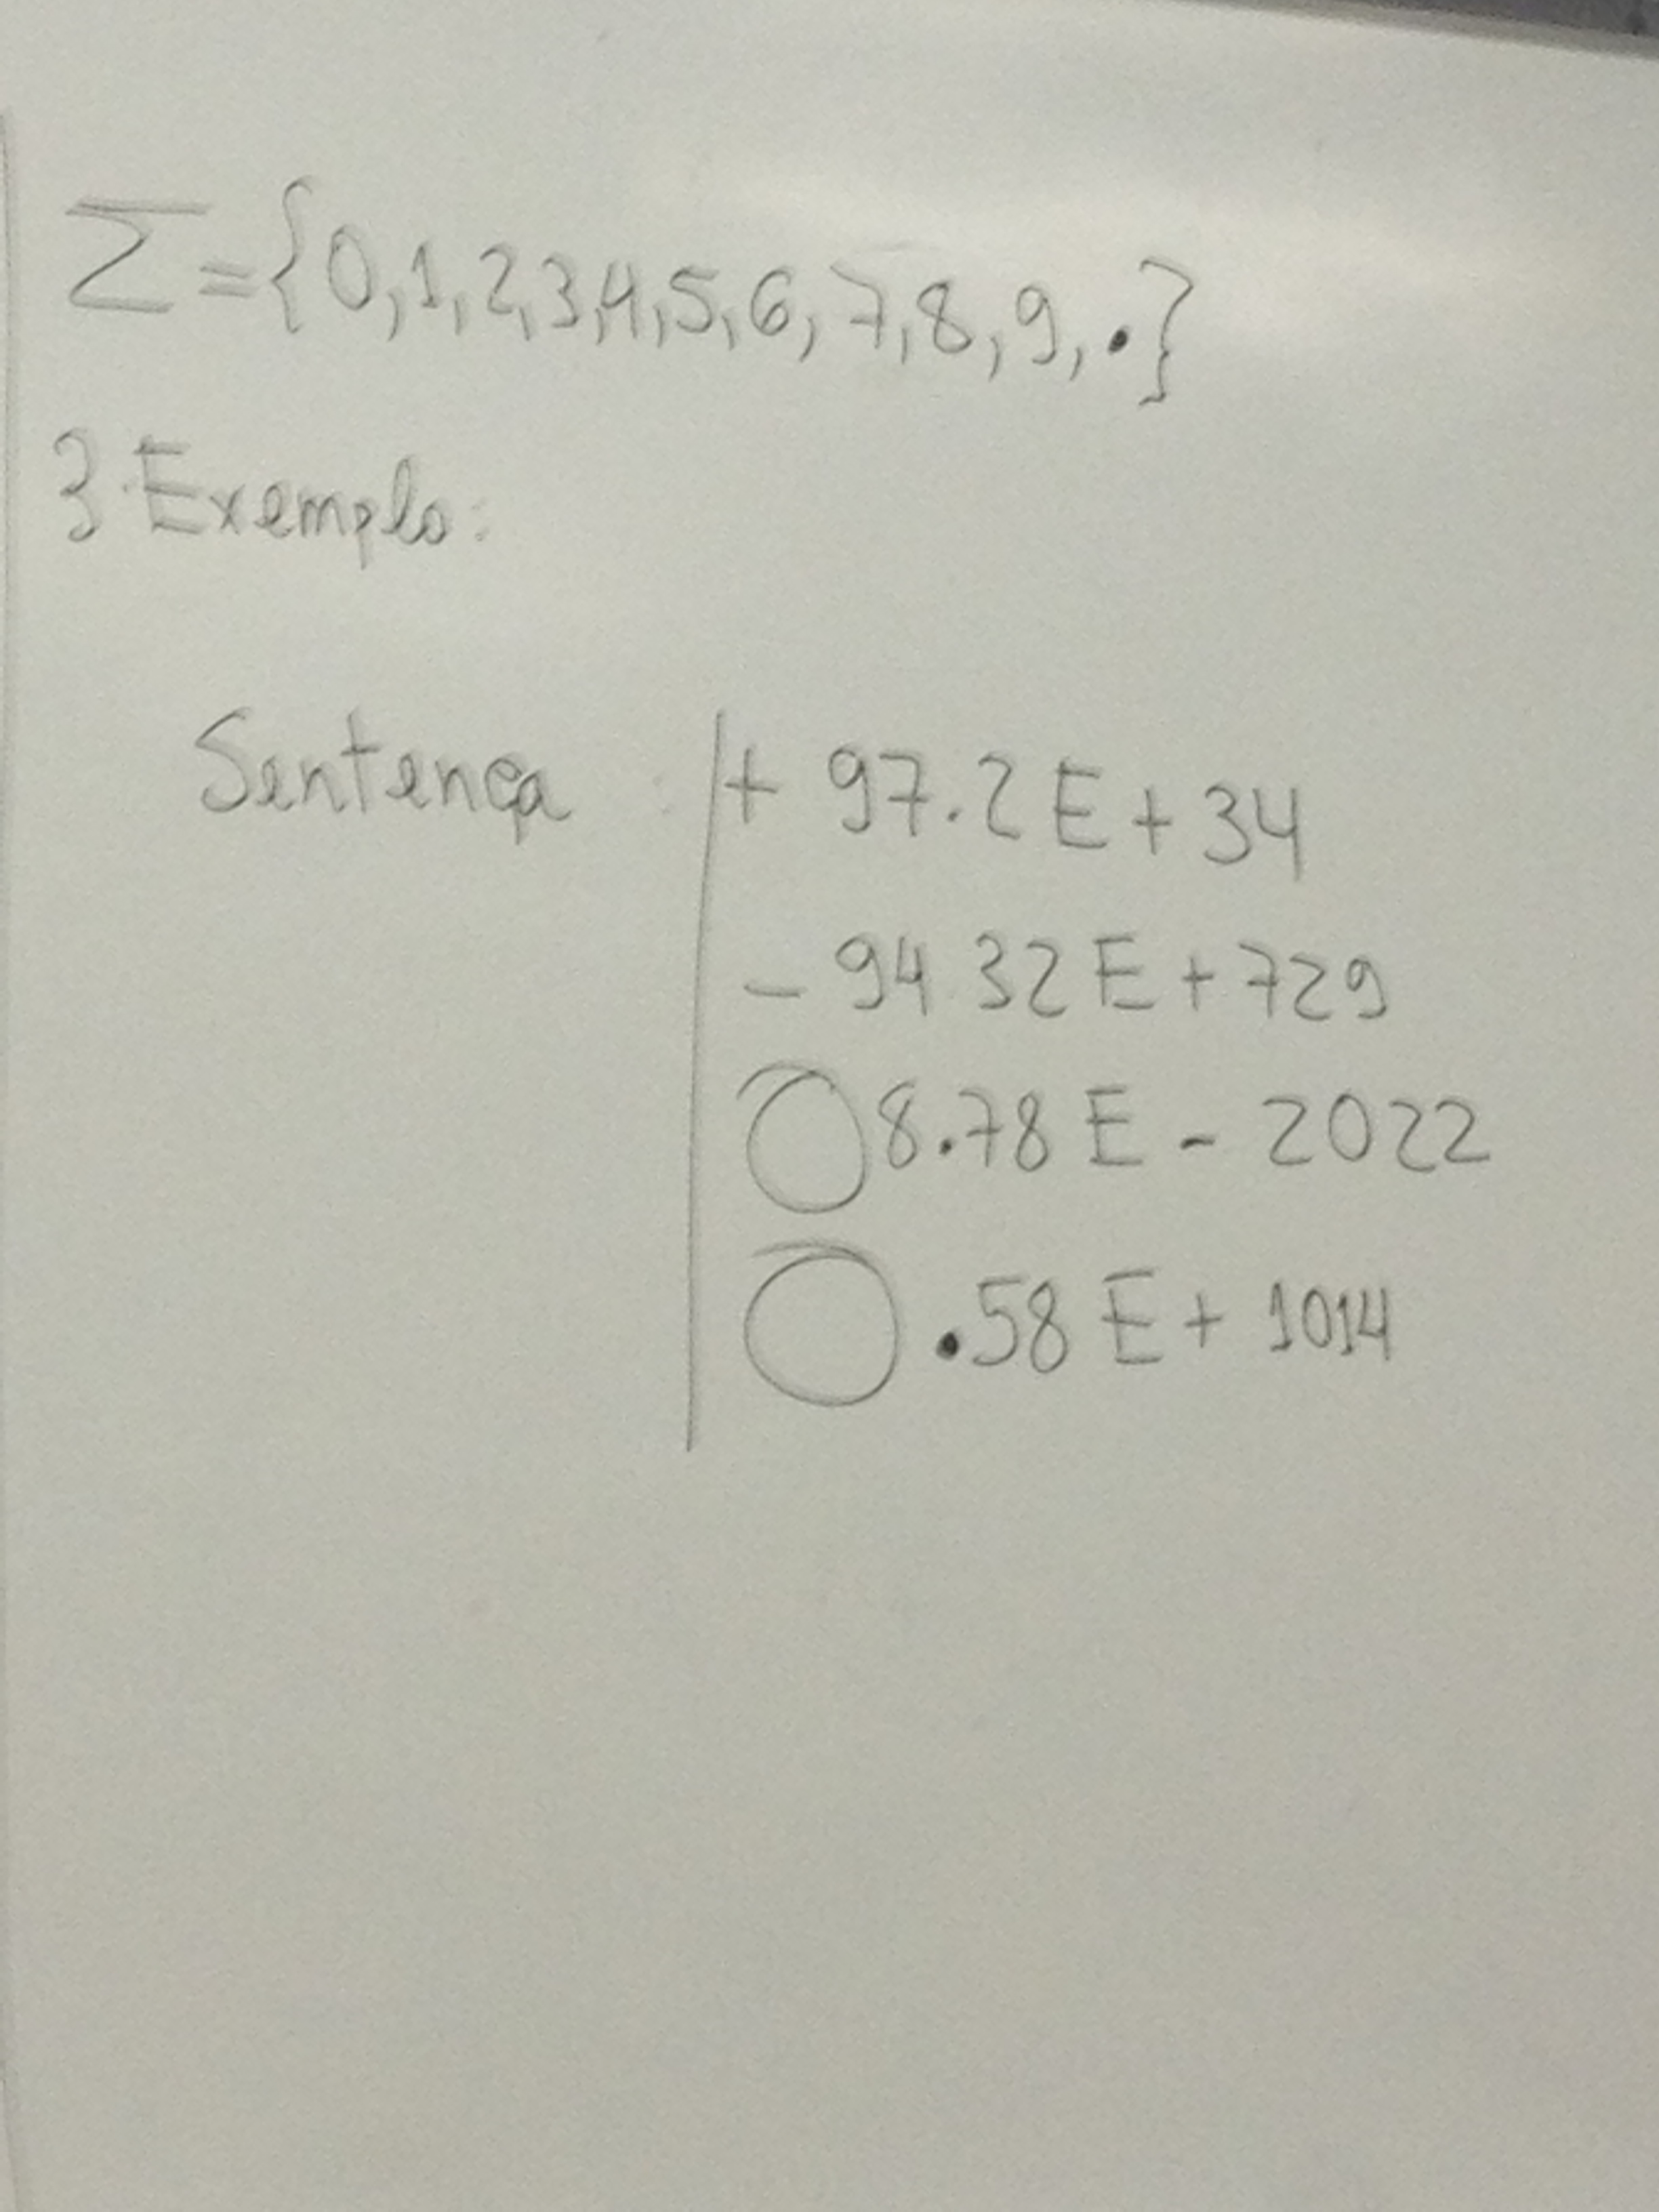 Σ={0,1,2,3,4,5,6,7,8,9,.}
3 Exemplo:
Sentença + 97.2E+34
- 94 32E+729
8.78E-2022
.58E+1014